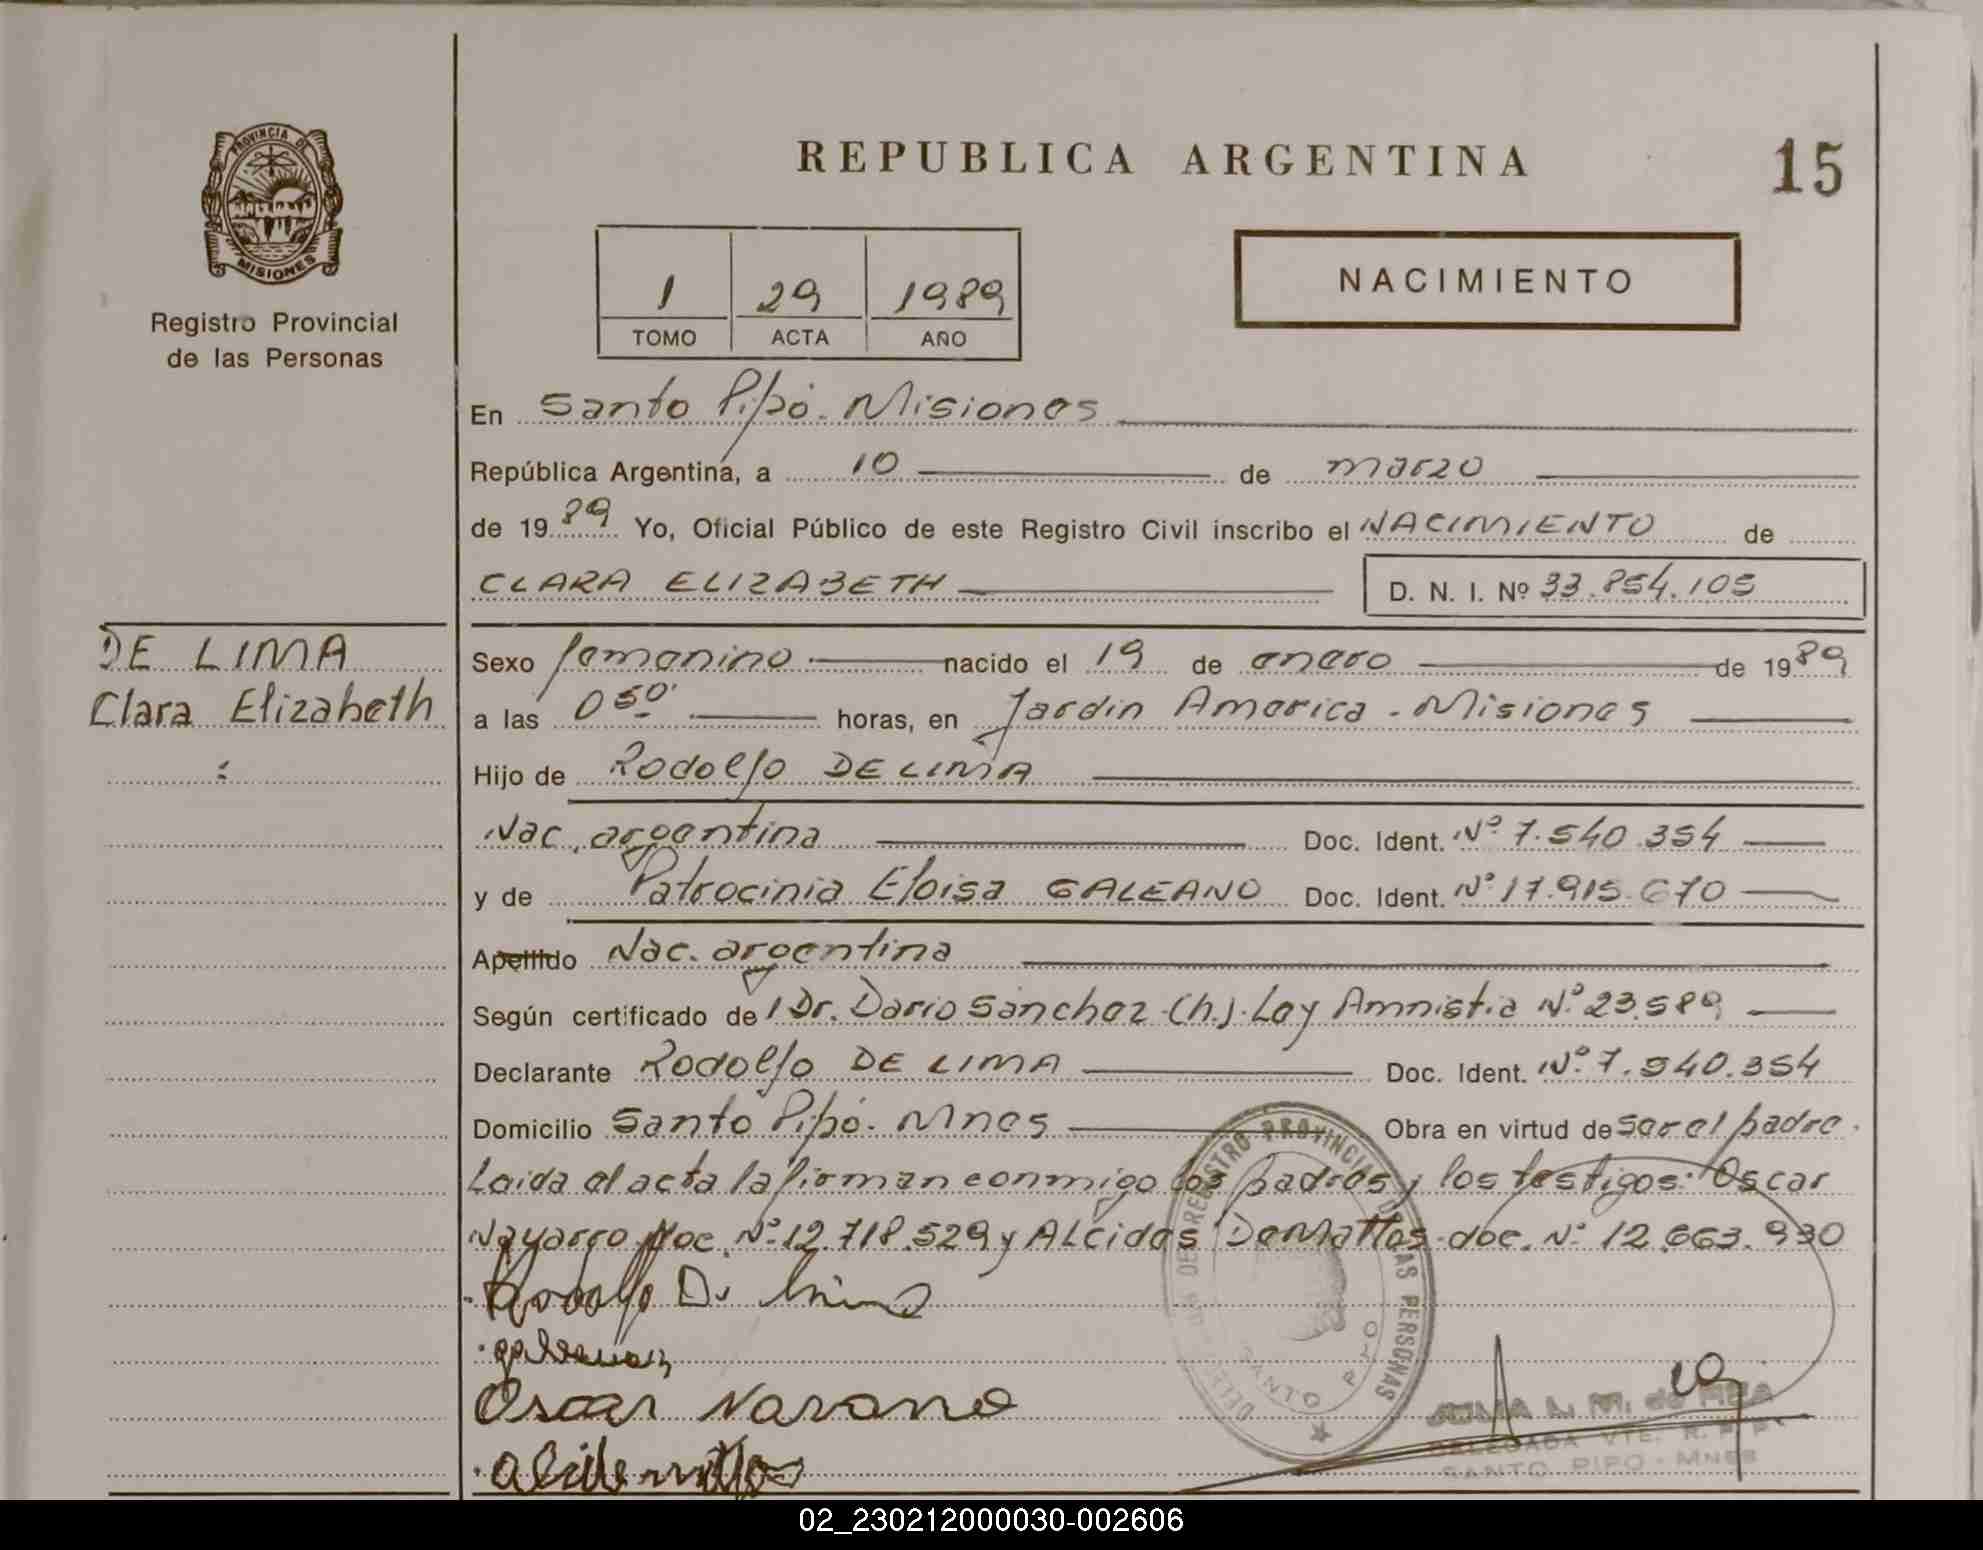 PROVINCIA DE
MISIONES
Registro Provincial
de las Personas
REPUBLICA ARGENTINA
15
1 29 1989
TOMO ACTA AÑO
NACIMIENTO
En Santo Pipó. Misiones
República Argentina, a 10 de marzo
de 1989 Yo, Oficial Público de este Registro Civil inscribo el NACIMIENTO de
CLARA ELIZABETH D. N. I. Nº 33.854.105
DE LIMA
Clara Elizabeth
Sexo femenino nacido el 19 de enero de 1989
a las 0 50' horas, en Jardín America - Misiones
Hijo de Rodolfo DE LIMA
Nac. argentina Doc. Ident. Nº 7.540.354
y de Patrocinia Eloisa GALEANO Doc. Ident. Nº 17.915.670
Apellido Nac. argentina
Según certificado de Dr. Dario Sanchez (h.). Ley Amnistia Nº 23.589
Declarante Rodolfo DE LIMA Doc. Ident. Nº 7.540.354
Domicilio Santo Pipó. Mnes Obra en virtud de ser el padre.
Leida el acta la firman conmigo los padres y los testigos: Oscar
Navarro doc. Nº 12.718.529 y ALcides DeMattos doc. Nº 12.663.930
Rodolfo De Lima
Oscar Navarro
REGISTRO PROVINCIAL DE LAS PERSONAS
SANTO PIPO
L. M. de
DELEGADA VTE. R. P. P.
SANTO PIPO - MNES
02_230212000030-002606